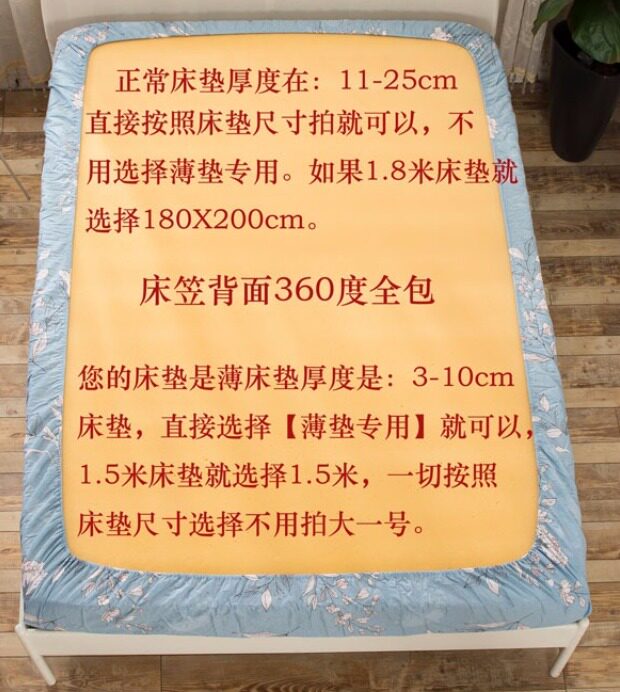 正常床垫厚度在：11-25cm
直接按照床垫尺寸拍就可以，不
用选择薄垫专用。如果1.8米床垫就
选择180X200cm。
床笠背面360度全包
您的床垫是薄床垫厚度是：3-10cm
床垫，直接选择【薄垫专用】就可以，
1.5米床垫就选择1.5米，一切按照
床垫尺寸选择不用拍大一号。